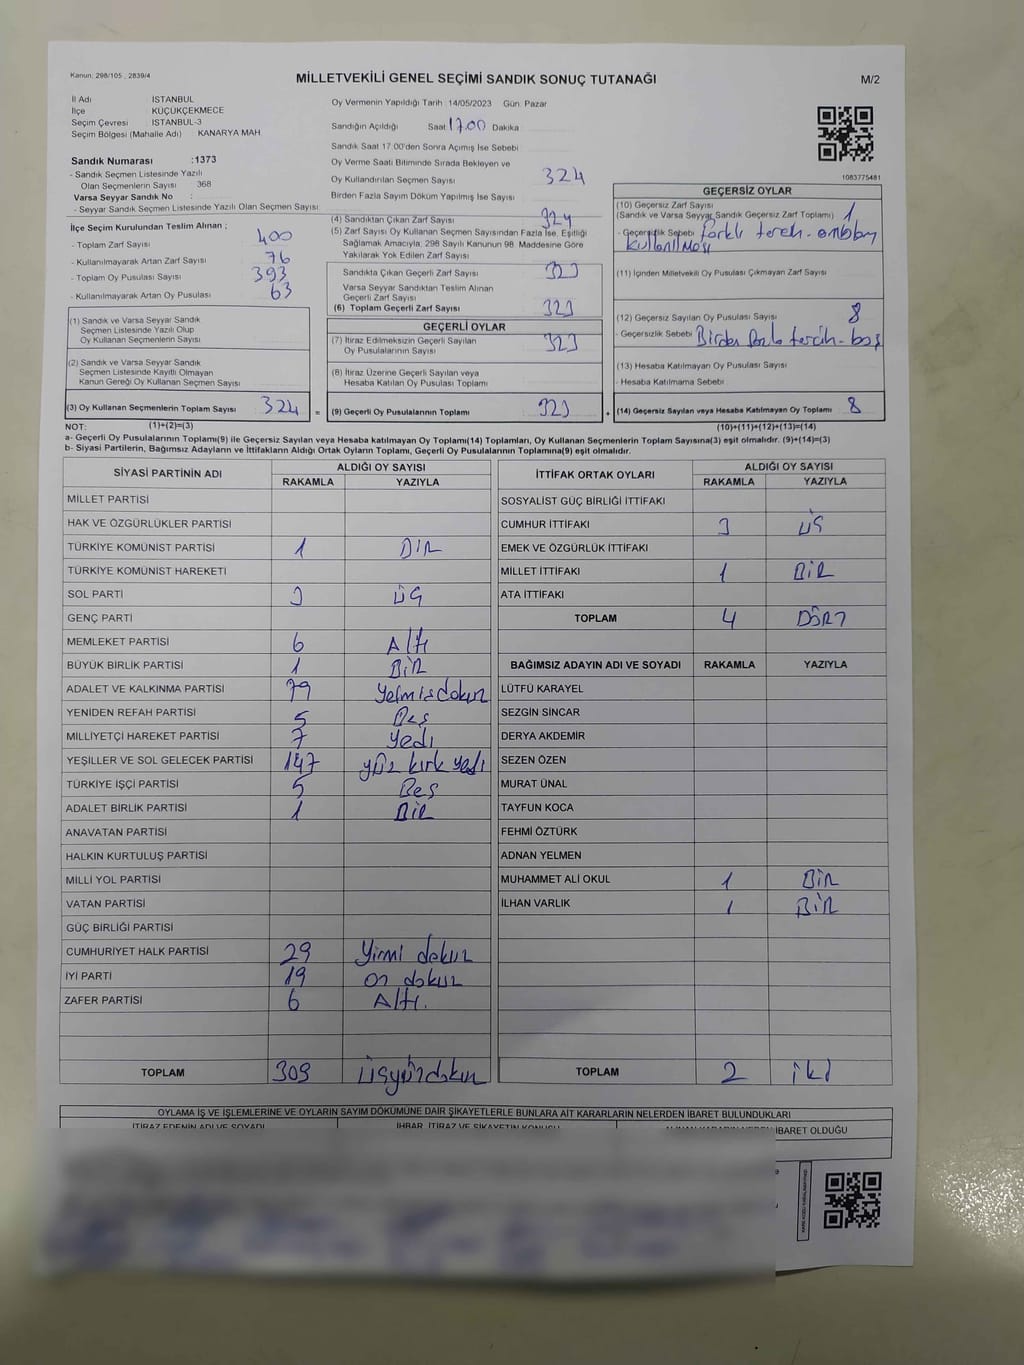 Kanun: 298/105 , 2839/4
MİLLETVEKİLİ GENEL SEÇİMİ SANDIK SONUÇ TUTANAĞI
M/2
İl Adı İSTANBUL
İlçe : KÜÇÜKÇEKMECE
Seçim Çevresi : İSTANBUL-3
Seçim Bölgesi (Mahalle Adı) KANARYA MAH.
Sandık Numarası :1373
- Sandık Seçmen Listesinde Yazılı
Olan Seçmenlerin Sayısı 368
Varsa Seyyar Sandık No :
- Seyyar Sandık Seçmen Listesinde Yazılı Olan Seçmen Sayısı:
İlçe Seçim Kurulundan Teslim Alınan ;
- Toplam Zarf Sayısı 400
- Kullanılmayarak Artan Zarf Sayısı 76
- Toplam Oy Pusulası Sayısı 393
- Kullanılmayarak Artan Oy Pusulası 63
(1) Sandık ve Varsa Seyyar Sandık
Seçmen Listesinde Yazılı Olup
Oy Kullanan Seçmenlerin Sayısı
(2) Sandık ve Varsa Seyyar Sandık
Seçmen Listesinde Kayıtlı Olmayan
Kanun Gereği Oy Kullanan Seçmen Sayısı
(3) Oy Kullanan Seçmenlerin Toplam Sayısı 324 =
Oy Vermenin Yapıldığı Tarih : 14/05/2023 Gün: Pazar
Sandığın Açıldığı Saat 17.00 Dakika
Sandık Saat 17:00'den Sonra Açımış İse Sebebi
Oy Verme Saati Bitiminde Sırada Bekleyen ve
Oy Kullandırılan Seçmen Sayısı 324
Birden Fazla Sayım Döküm Yapılmış İse Sayısı
(4) Sandıktan Çıkan Zarf Sayısı 324
(5) Zarf Sayısı Oy Kullanan Seçmen Sayısından Fazla İse, Eşitliği
Sağlamak Amacıyla; 298 Sayılı Kanunun 98. Maddesine Göre
Yakılarak Yok Edilen Zarf Sayısı
Sandıkta Çıkan Geçerli Zarf Sayısı 323
Varsa Seyyar Sandıktan Teslim Alınan
Geçerli Zarf Sayısı
(6) Toplam Geçerli Zarf Sayısı 323
GEÇERLİ OYLAR
(7) İtiraz Edilmeksizin Geçerli Sayılan
Oy Pusulalarının Sayısı 323
(8) İtiraz Üzerine Geçerli Sayılan veya
Hesaba Katılan Oy Pusulası Toplamı
(9) Geçerli Oy Pusulalarının Toplamı 323 +
1083775481
GEÇERSİZ OYLAR
(10) Geçersiz Zarf Sayısı
(Sandık ve Varsa Seyyar Sandık Geçersiz Zarf Toplamı) 1
- Geçersizlik Sebebi farklı
kullanılması
(11) İçinden Milletvekili Oy Pusulası Çıkmayan Zarf Sayısı
(12) Geçersiz Sayılan Oy Pusulası Sayısı 8
- Geçersizlik Sebebi Birden fazla tercih - boş
(13) Hesaba Katılmayan Oy Pusulası Sayısı
- Hesaba Katılmama Sebebi
(14) Geçersiz Sayılan veya Hesaba Katılmayan Oy Toplamı 8
NOT: (1)+(2)=(3) (10)+(11)+(12)+(13)=(14)
a- Geçerli Oy Pusulalarının Toplamı(9) ile Geçersiz Sayılan veya Hesaba katılmayan Oy Toplamı(14) Toplamları, Oy Kullanan Seçmenlerin Toplam Sayısına(3) eşit olmalıdır. (9)+(14)=(3)
b- Siyasi Partilerin, Bağımsız Adayların ve İttifakların Aldığı Ortak Oyların Toplamı, Geçerli Oy Pusulalarının Toplamına(9) eşit olmalıdır.
SİYASİ PARTİNİN ADI ALDIĞI OY SAYISI
RAKAMLA YAZIYLA
MİLLET PARTİSİ
HAK VE ÖZGÜRLÜKLER PARTİSİ
TÜRKİYE KOMÜNİST PARTİSİ 1 BİR
TÜRKİYE KOMÜNİST HAREKETİ
SOL PARTİ 3 ÜÇ
GENÇ PARTİ
MEMLEKET PARTİSİ 6 Altı
BÜYÜK BİRLİK PARTİSİ 1 BİR
ADALET VE KALKINMA PARTİSİ 79 Yetmişdokuz
YENİDEN REFAH PARTİSİ 5 Beş
MİLLİYETÇİ HAREKET PARTİSİ 7 Yedi
YEŞİLLER VE SOL GELECEK PARTİSİ 147 yüz kırk yedi
TÜRKİYE İŞÇİ PARTİSİ 5 Beş
ADALET BİRLİK PARTİSİ 1 BİR
ANAVATAN PARTİSİ
HALKIN KURTULUŞ PARTİSİ
MİLLİ YOL PARTİSİ
VATAN PARTİSİ
GÜÇ BİRLİĞİ PARTİSİ
CUMHURİYET HALK PARTİSİ 29 Yirmi dokuz
İYİ PARTİ 19 on dokuz
ZAFER PARTİSİ 6 Altı.
TOPLAM 309 Üçyüzdokuz
İTTİFAK ORTAK OYLARI ALDIĞI OY SAYISI
RAKAMLA YAZIYLA
SOSYALİST GÜÇ BİRLİĞİ İTTİFAKI
CUMHUR İTTİFAKI 3 ÜÇ
EMEK VE ÖZGÜRLÜK İTTİFAKI
MİLLET İTTİFAKI 1 BİR
ATA İTTİFAKI
TOPLAM 4 DÖRT
BAĞIMSIZ ADAYIN ADI VE SOYADI RAKAMLA YAZIYLA
LÜTFÜ KARAYEL
SEZGİN SİNCAR
DERYA AKDEMİR
SEZEN ÖZEN
MURAT ÜNAL
TAYFUN KOCA
FEHMİ ÖZTÜRK
ADNAN YELMEN
MUHAMMET ALİ OKUL 1 BİR
İLHAN VARLIK 1 BİR
TOPLAM 2 iki
OYLAMA İŞ VE İŞLEMLERİNE VE OYLARIN SAYIM DÖKÜMÜNE DAİR ŞİKAYETLERLE BUNLARA AİT KARARLARIN NELERDEN İBARET BULUNDUKLARI
İTİRAZ EDENİN ADI VE SOYADI İHBAR, İTİRAZ VE ŞİKAYETİN KONUSU İBARET OLDUĞU